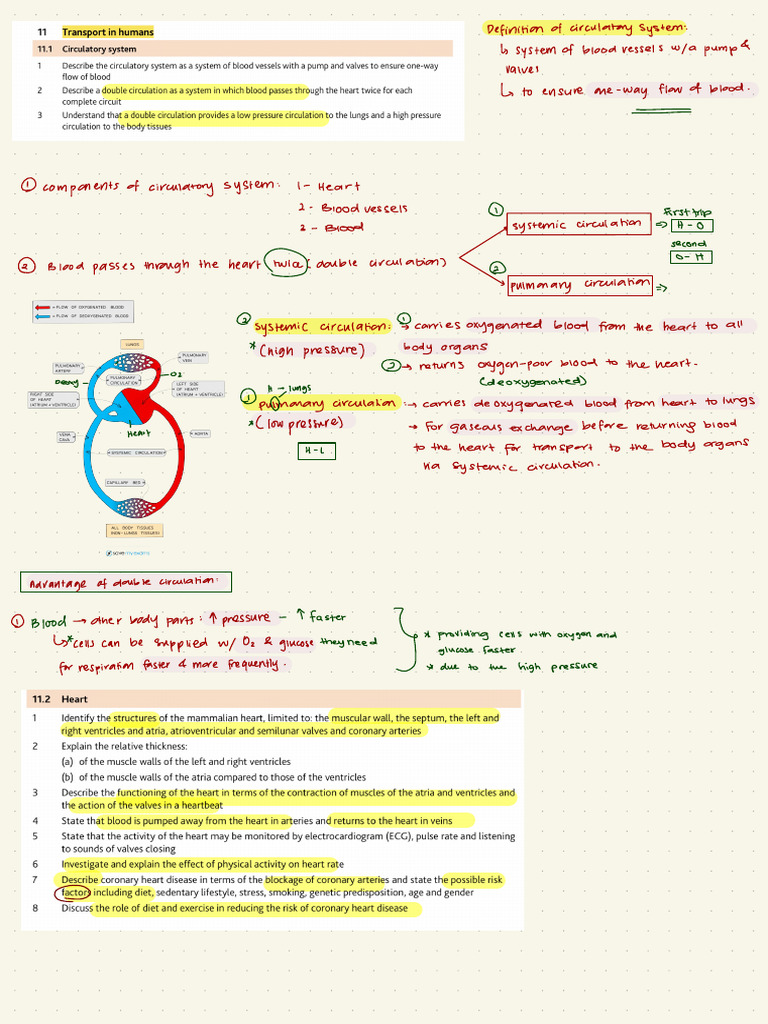 11 Transport in humans
11.1 Circulatory system
1 Describe the circulatory system as a system of blood vessels with a pump and valves to ensure one-way
flow of blood
2 Describe a double circulation as a system in which blood passes through the heart twice for each
complete circuit
3 Understand that a double circulation provides a low pressure circulation to the lungs and a high pressure
circulation to the body tissues
Definition of circulatory system:
↳ system of blood vessels w/a pump &
valves
↳ to ensure one-way flow of blood.
① components of circulatory system: 1- Heart
2- Blood vessels
3- Blood
② Blood passes through the heart twice (double circulation)
① systemic circulation ⇒ First trip
H-O
second
O-H
② pulmonary circulation ⇒
= FLOW OF OXYGENATED BLOOD
= FLOW OF DEOXYGENATED BLOOD
LUNGS
PULMONARY
ARTERY
PULMONARY
VEIN
Deoxy
O2
PULMONARY
CIRCULATION
RIGHT SIDE
OF HEART
(ATRIUM + VENTRICLE)
LEFT SIDE
OF HEART
(ATRIUM + VENTRICLE)
Heart
VENA
CAVA
AORTA
SYSTEMIC CIRCULATION
CAPILLARY BED
ALL BODY TISSUES
(NON-LUNGS TISSUES)
save my exams
② systemic circulation: ① → carries oxygenated blood from the heart to all
* (high pressure) body organs
② → returns oxygen-poor blood to the heart.
(deoxygenated)
H → lungs
① pulmonary circulation: → carries deoxygenated blood from heart to lungs
* (low pressure) → For gaseous exchange before returning blood
H-L to the heart for transport to the body organs
via systemic circulation.
Advantage of double circulation:
① Blood → other body parts: ↑ pressure - ↑ faster
↳ * cells can be supplied w/ O2 & glucose they need
for respiration faster & more frequently.
* providing cells with oxygen and
glucose faster
* due to the high pressure
11.2 Heart
1 Identify the structures of the mammalian heart, limited to: the muscular wall, the septum, the left and
right ventricles and atria, atrioventricular and semilunar valves and coronary arteries
2 Explain the relative thickness:
(a) of the muscle walls of the left and right ventricles
(b) of the muscle walls of the atria compared to those of the ventricles
3 Describe the functioning of the heart in terms of the contraction of muscles of the atria and ventricles and
the action of the valves in a heartbeat
4 State that blood is pumped away from the heart in arteries and returns to the heart in veins
5 State that the activity of the heart may be monitored by electrocardiogram (ECG), pulse rate and listening
to sounds of valves closing
6 Investigate and explain the effect of physical activity on heart rate
7 Describe coronary heart disease in terms of the blockage of coronary arteries and state the possible risk
factors including diet, sedentary lifestyle, stress, smoking, genetic predisposition, age and gender
8 Discuss the role of diet and exercise in reducing the risk of coronary heart disease